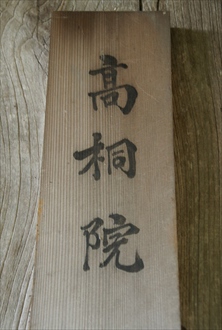 高桐院